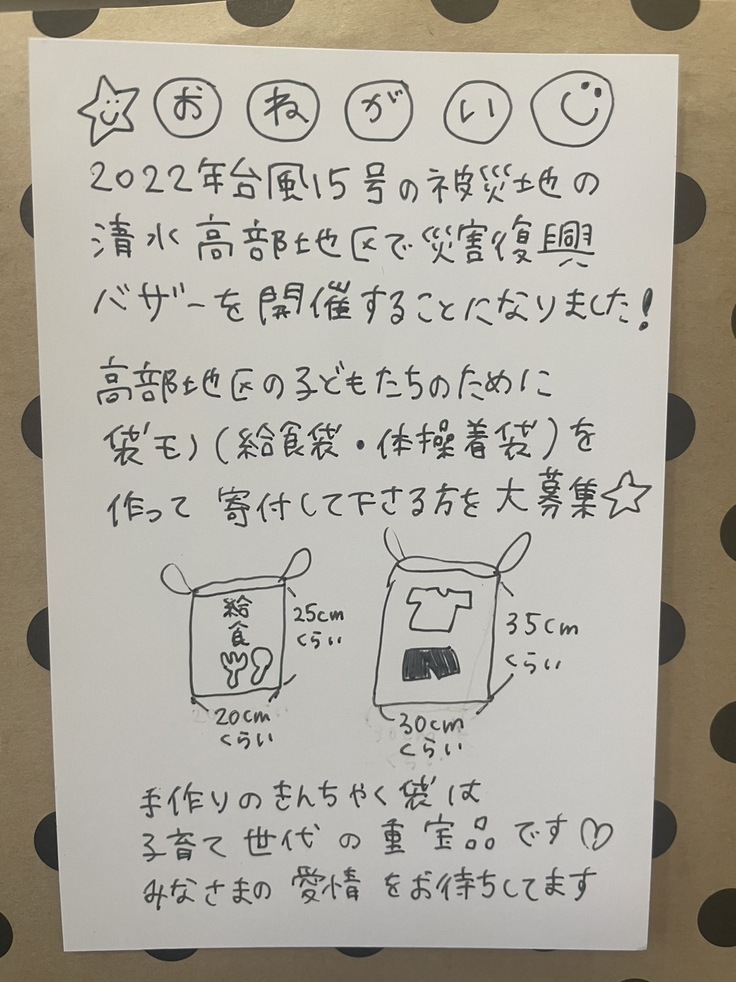 おねがい
2022年台風15号の被災地の
清水高部地区で災害復興
バザーを開催することになりました!
高部地区の子どもたちのために
袋モノ(給食袋・体操着袋)を
作って寄付して下さる方を大募集☆
給
食
25cm
くらい
20cm
くらい
35cm
くらい
30cm
くらい
手作りのきんちゃく袋は
子育て世代の重宝品です♡
みなさまの愛情をお待ちしてます